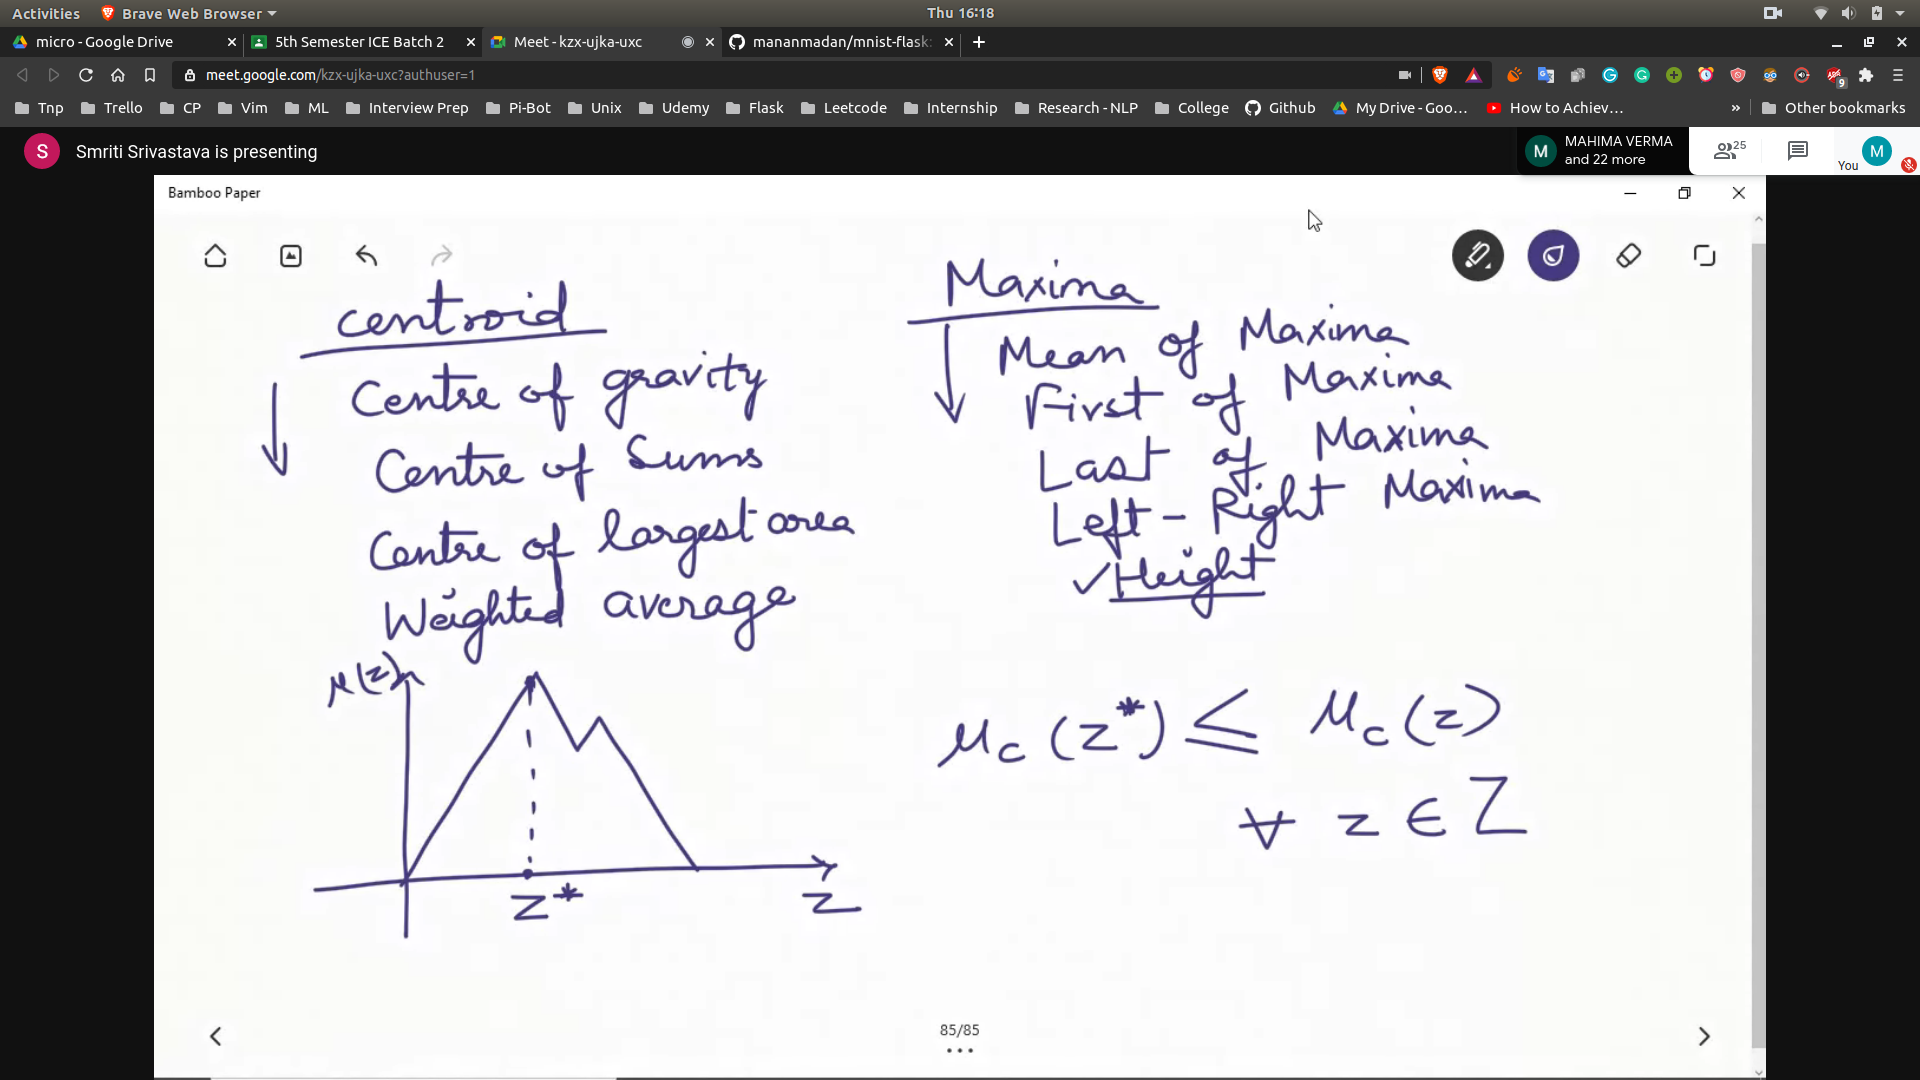 Activities Brave Web Browser Thu 16:18
micro - Google Drive 5th Semester ICE Batch 2 Meet - kzx-ujka-uxc mananmadan/mnist-flask
meet.google.com/kzx-ujka-uxc?authuser=1 9
Tnp Trello CP Vim ML Interview Prep Pi-Bot Unix Udemy Flask Leetcode Internship Research - NLP College Github My Drive - Goo... How to Achiev... » Other bookmarks
S Smriti Srivastava is presenting M MAHIMA VERMA and 22 more 25 You M
Bamboo Paper
centroid
Centre of gravity
Centre of Sums
Centre of largest area
Weighted average
Maxima
Mean of Maxima
First of Maxima
Last of Maxima
Left - Right Maxima
✓ Height
μ(z)
z*
z
μc (z*) ≤ μc (z)
∀ z ∈ Z
85/85